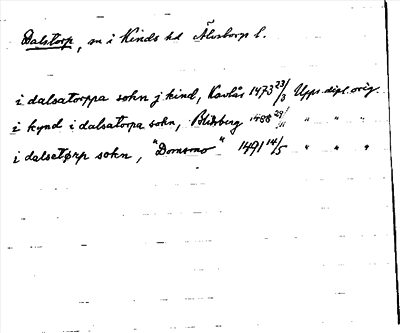 Dalstorp, sn i Kinds hd Älvsborgs l.
i dalsatorppa sokn j kind, Kavlås 1473 23/3 Upps. dipl. orig.
i kynd i dalsatorpa sokn, Blidsberg 1488 29/11 " " "
i dalsetørp sokn, "Domsmo" 1491 14/5 " " "